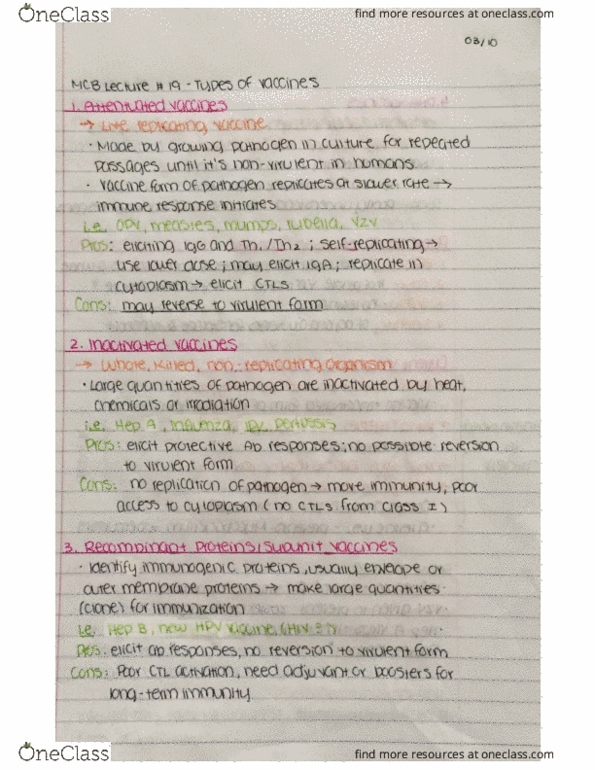 OneClass
find more resources at oneclass.com
03/10
MCB Lecture # 19 - Types of vaccines
1. Attenuated vaccines
→ Live replicating vaccine
· Made by growing pathogen in culture for repeated
passages until it's non-virulent in humans
· Vaccine form of pathogen replicates at slower rate →
immune response initiates
i.e. OPV, measles, mumps, rubella, VZV
Pros: eliciting IgG and Th1/Th2; self-replicating →
use lower dose; may elicit IgA; replicate in
cytoplasm → elicit CTLs
Cons: may reverse to virulent form
2. Inactivated vaccines
→ Whole, killed, non-replicating organism
· Large quantities of pathogen are inactivated by heat,
chemicals or irradiation
i.e. Hep A, Influenza, IPV, pertussis
Pros: elicit protective Ab responses; no possible reversion
to virulent form
Cons: no replication of pathogen → move immunity, poor
access to cytoplasm (no CTLs from class I)
3. Recombinant Proteins/Subunit vaccines
· Identify immunogenic proteins, usually envelope or
outer membrane proteins → make large quantities
(clone) for immunization
i.e. Hep B, new HPV vaccine, (HIV?)
Pros: elicit ab responses, no reversion to virulent form
Cons: Poor CTL activation, need adjuvant or boosters for
long-term immunity
OneClass
find more resources at oneclass.com